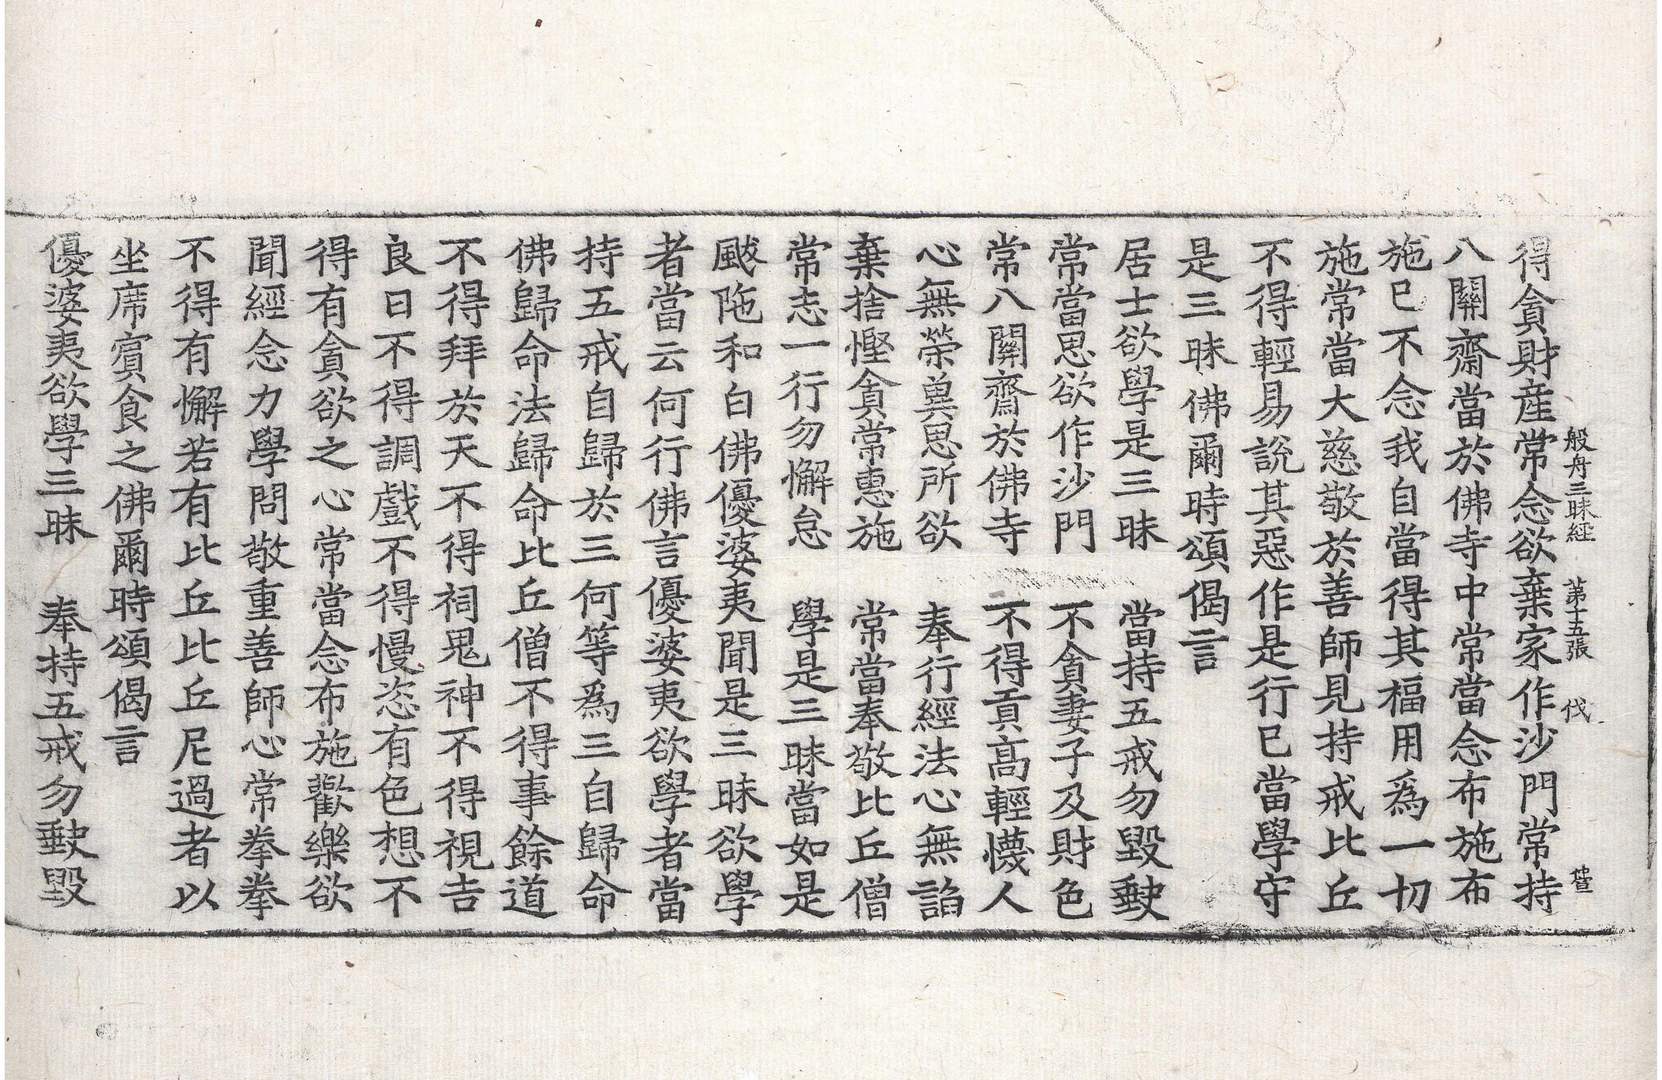 般舟三昧經 第十五張 伐
得貪財産常念欲棄家作沙門常持
八關齋當於佛寺中常當念布施布
施已不念我自當得其福用爲一切
施常當大慈敬於善師見持戒比丘
不得輕易說其惡作是行已當學守
是三昧佛爾時頌偈言
居士欲學是三昧 當持五戒勿毀缺
常當思欲作沙門 不貪妻子及財色
常八關齋於佛寺 不得貢高輕懱人
心無榮冀思所欲 奉行經法心無諂
棄捨慳貪常惠施 常當奉敬比丘僧
常志一行勿懈怠 學是三昧當如是
颰陁和白佛優婆夷聞是三昧欲學
者當云何行佛言優婆夷欲學者當
持五戒自歸於三何等爲三自歸命
佛歸命法歸命比丘僧不得事餘道
不得拜於天不得祠鬼神不得視吉
良日不得調戲不得慢恣有色想不
得有貪欲之心常當念布施歡樂欲
聞經念力學問敬重善師心常拳拳
不得有懈若有比丘比丘尼過者以
坐席賓食之佛爾時頌偈言
優婆夷欲學三昧 奉持五戒勿缺毀